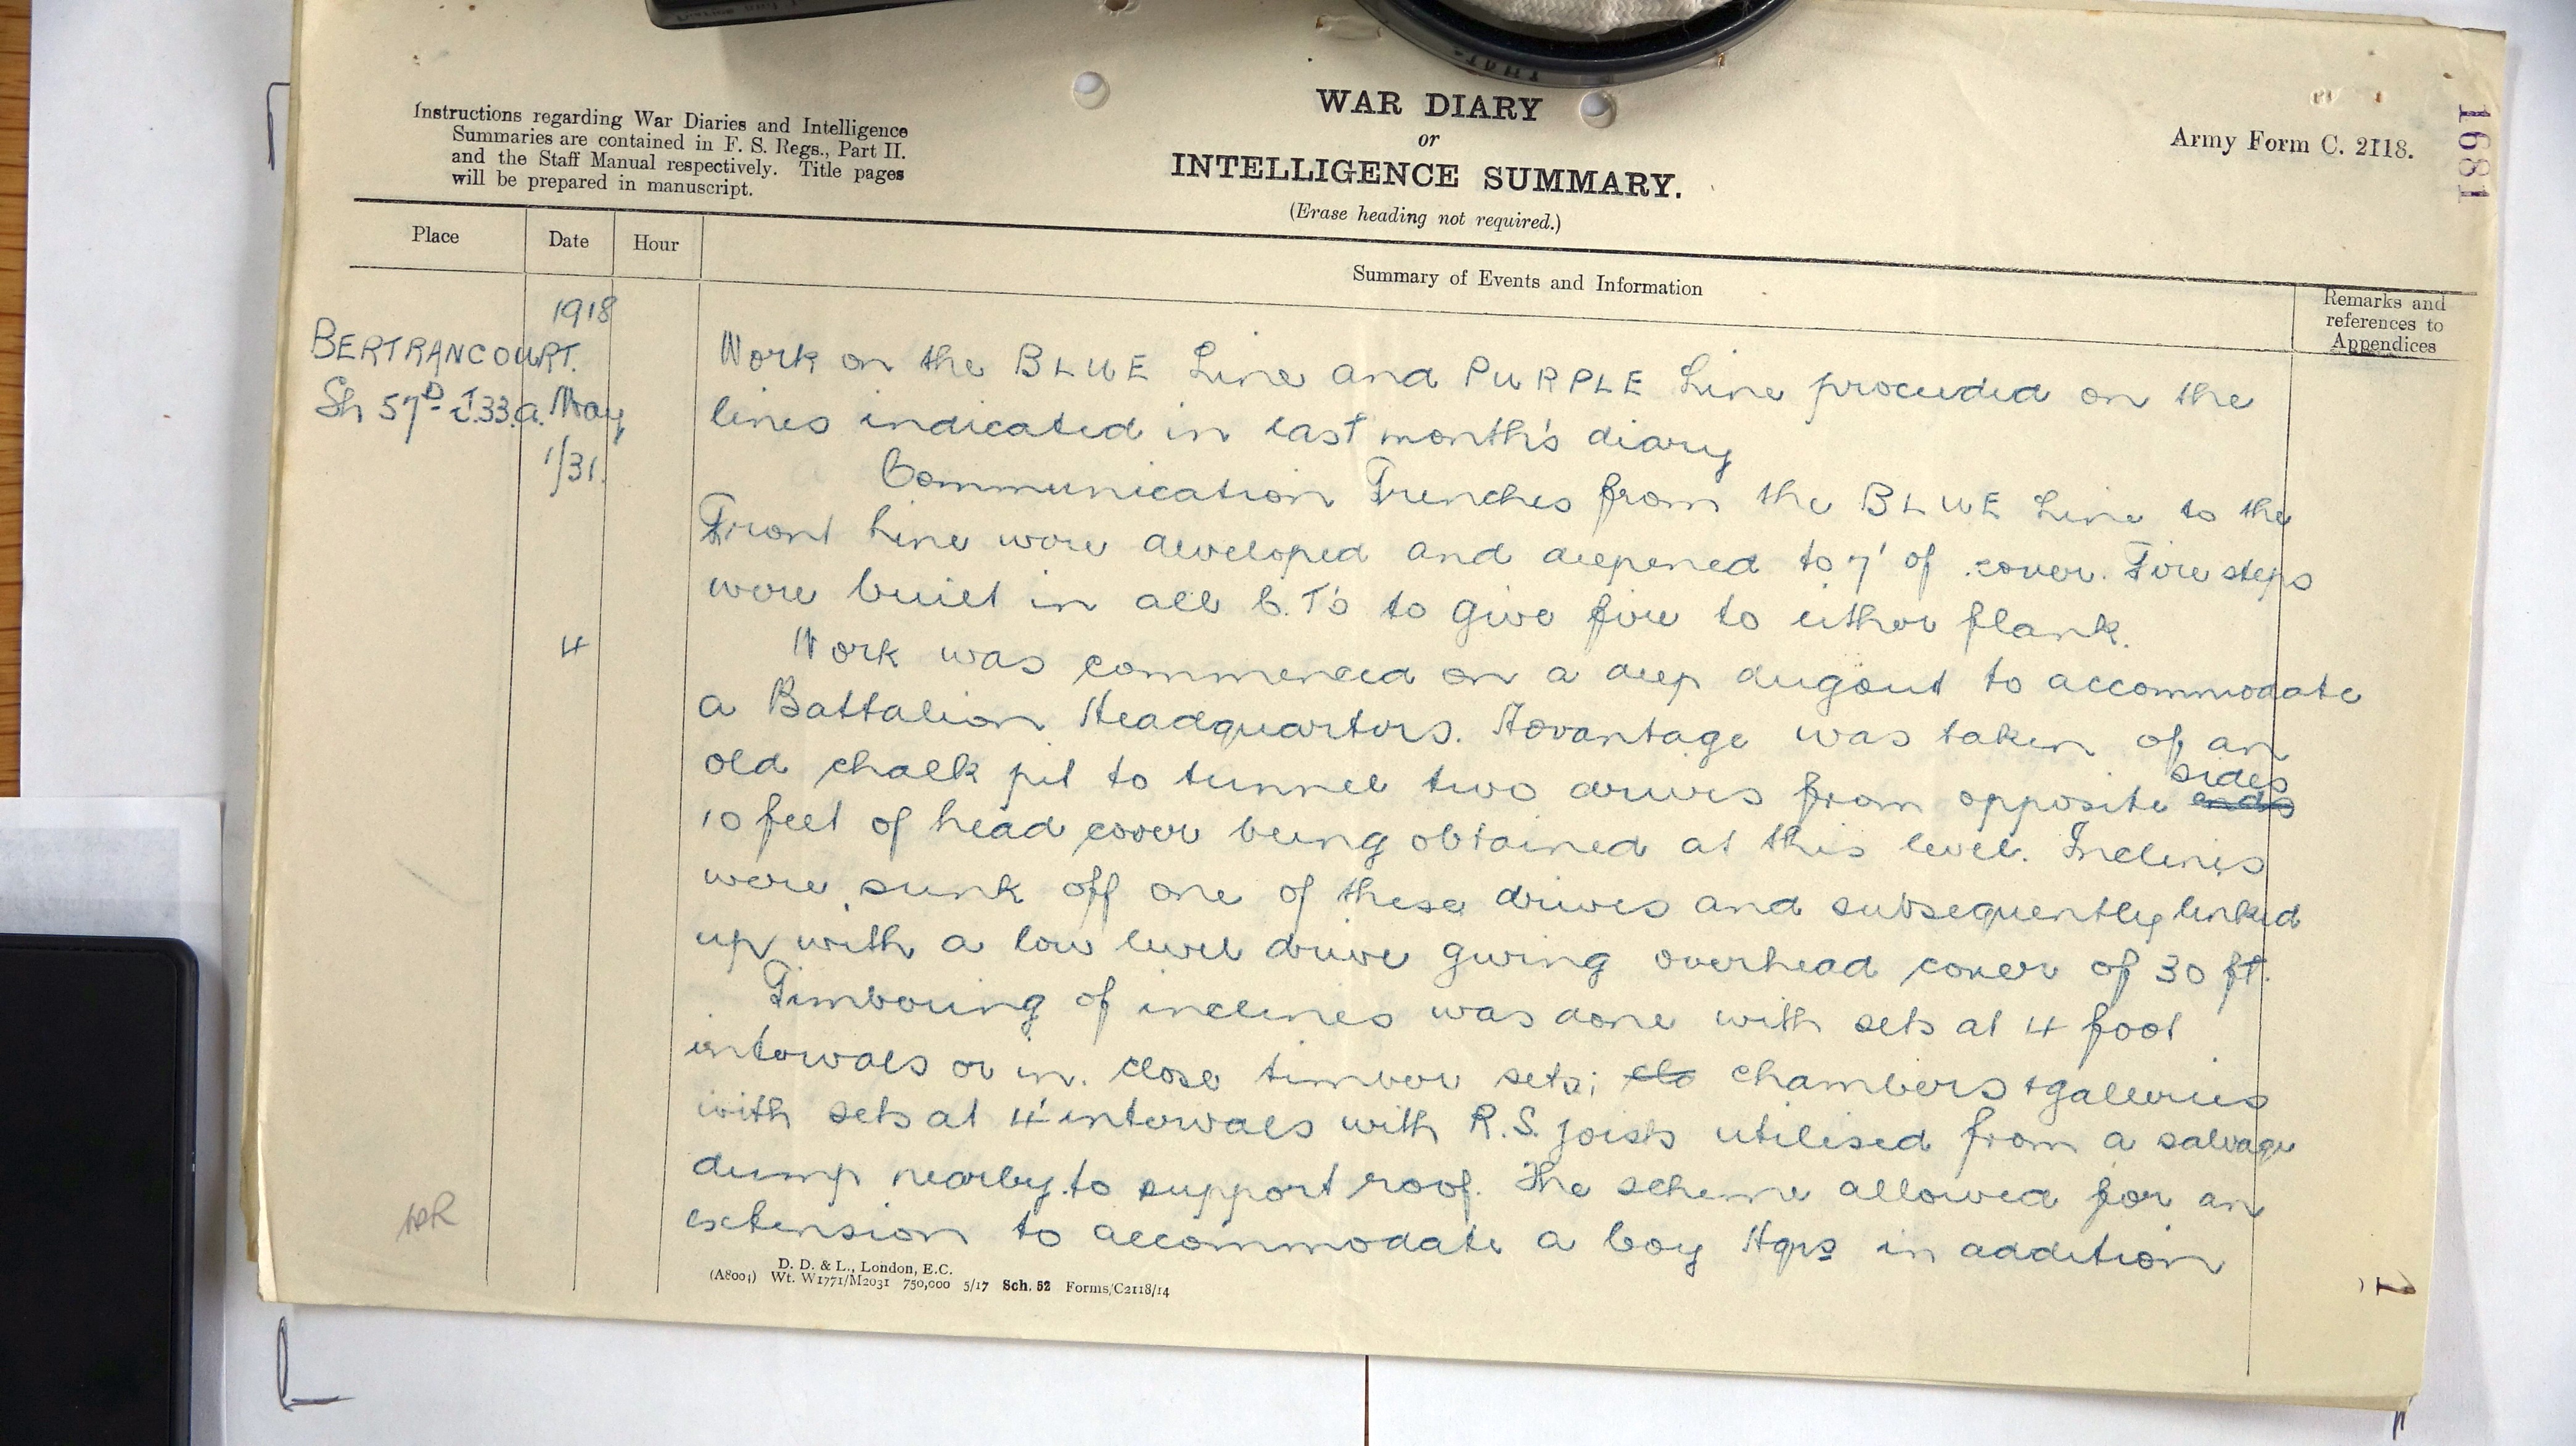 Instructions regarding War Diaries and Intelligence
Summaries are contained in F. S. Regs., Part II.
and the Staff Manual respectively. Title pages
will be prepared in manuscript.
WAR DIARY
or
INTELLIGENCE SUMMARY.
(Erase heading not required.)
Army Form C. 2118.
1681
Place
Date
Hour
Summary of Events and Information
Remarks and
references to
Appendices
1918
BERTRANCOURT.
Sh 57D J.33.a. May
1/31.
Work on the BLUE Line and PURPLE Line proceeded on the
lines indicated in last month's diary
Communication Trenches from the BLUE Line to the
Front Line were developed and deepened to 7' of cover. Fire steps
were built in all C.T's to give fire to either flank.
4
Work was commenced on a deep dugout to accommodate
a Battalion Headquarters. Advantage was taken of an
old chalk pit to tunnel two drives from opposite ends sides
10 feet of head cover being obtained at this level. Inclines
were sunk off one of these drives and subsequently linked
up with a low level drive giving overhead cover of 30 ft.
Timbering of inclines was done with sets at 4 foot
intervals or in close timber sets; clo chambers & galleries
with sets at 4' intervals with R.S. joists utilised from a salvage
dump nearby to support roof. The scheme allowed for an
extension to accommodate a Coy Hqrs in addition
D. D. & L., London, E.C.
(A8004) Wt. W1771/M2031 750,000 5/17 Sch. 52 Forms/C2118/14